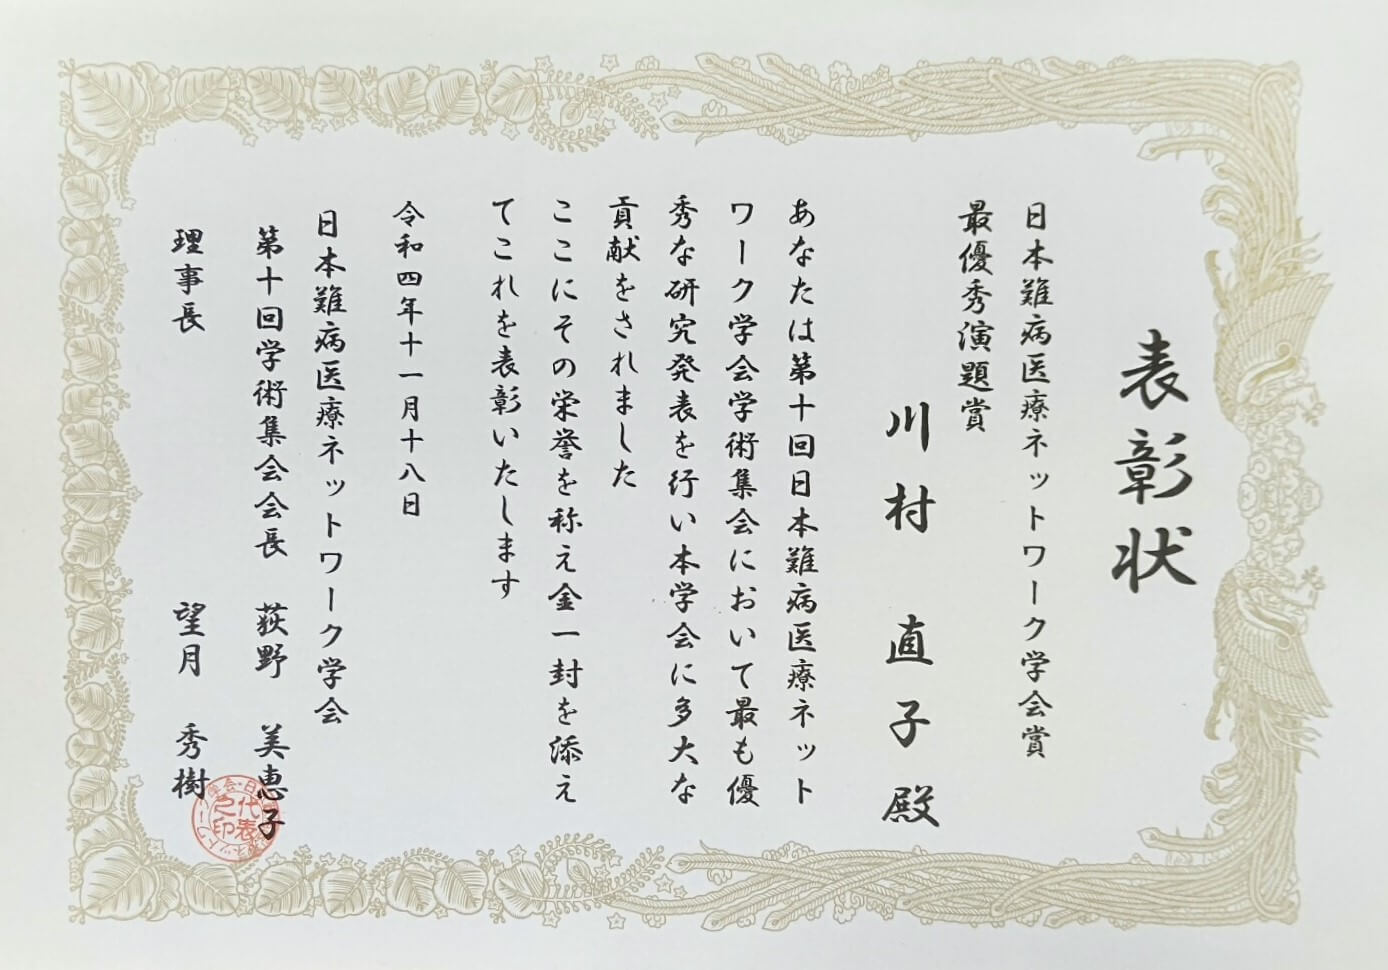 表彰状
日本難病医療ネットワーク学会賞
最優秀演題賞
川村 直子 殿
あなたは第十回日本難病医療ネット
ワーク学会学術集会において最も優
秀な研究発表を行い本学会に多大な
貢献をされました
ここにその栄誉を称え金一封を添え
てこれを表彰いたします
令和四年十一月十八日
日本難病医療ネットワーク学会
第十回学術集会会長 荻野 美恵子
理事長 望月 秀樹
代表
之印